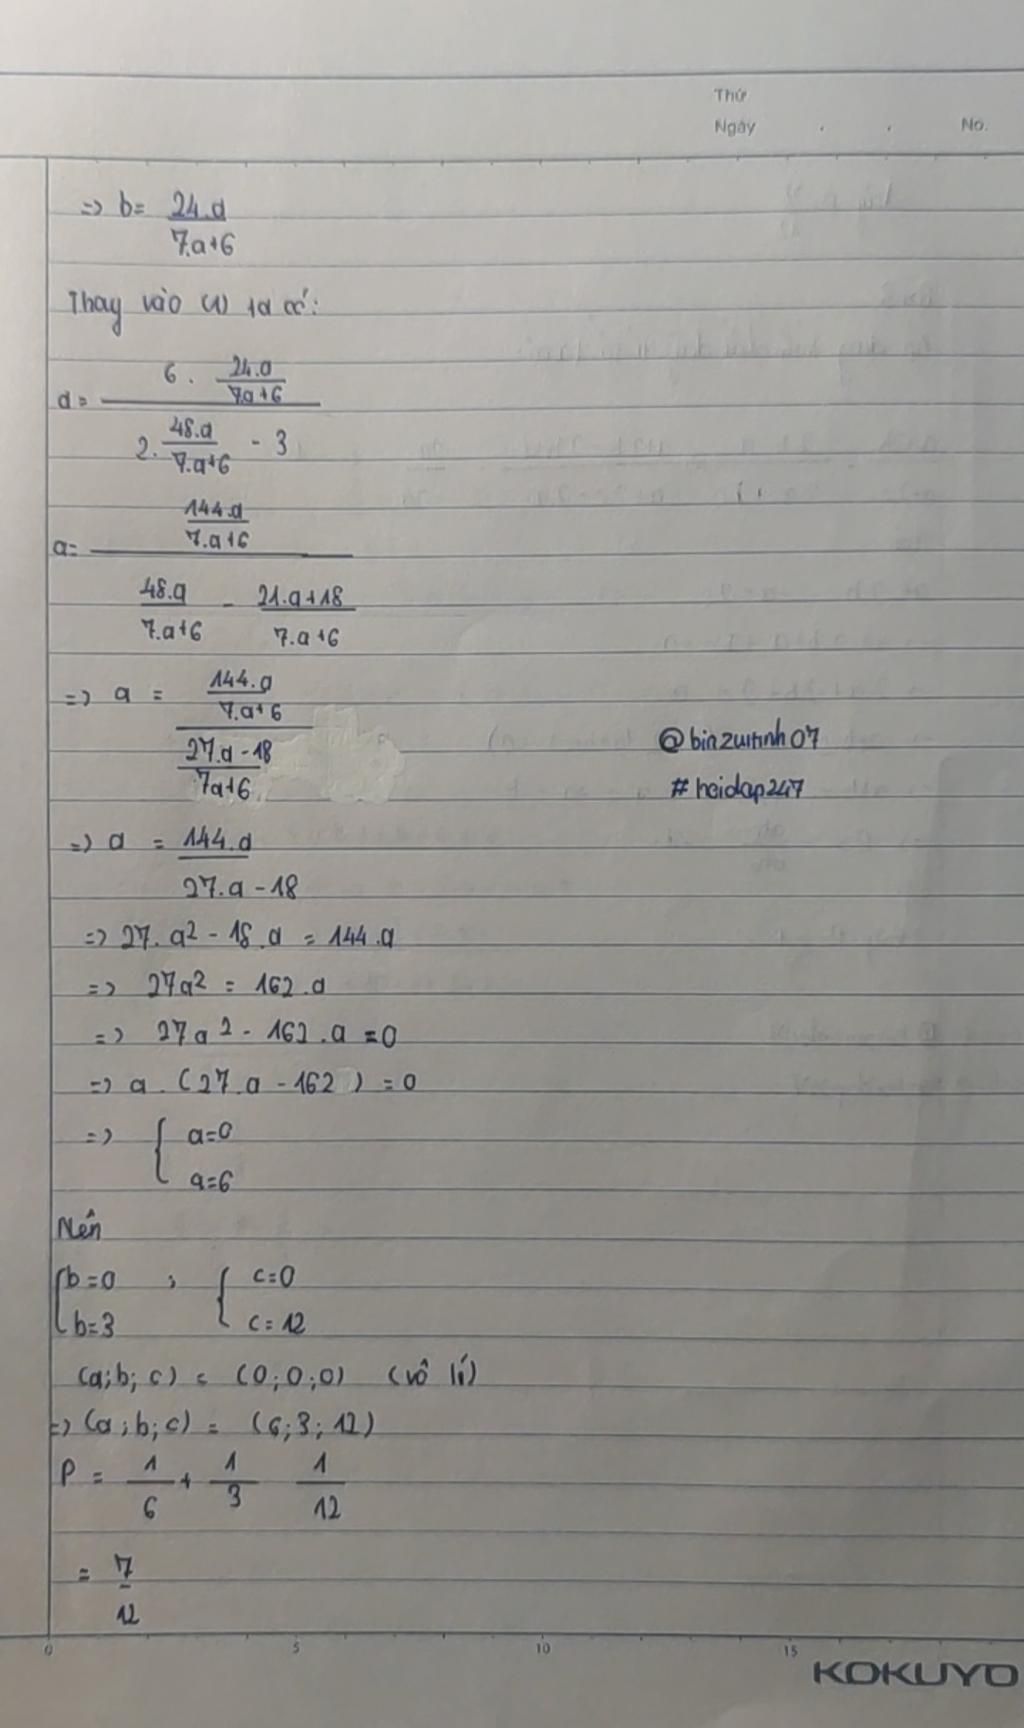 Thứ
Ngày . . No.
=> b = 24.a / 7.a+6
Thay vào (1) ta có:
a = 6 . 24.a / 7.a+6 / 2. 48.a / 7.a+6 - 3
a = 144.a / 7.a+6 / 48.a / 7.a+6 - 21.a+18 / 7.a+6
=> a = 144.a / 7.a+6 / 27.a - 18 / 7a+6
@binzuitinh07
#hoidap247
=> a = 144.a / 27.a - 18
=> 27.a² - 18.a = 144.a
=> 27a² = 162.a
=> 27a² - 162.a = 0
=> a . (27.a - 162) = 0
=> { a=0
a=6
Nên
{ b=0 ; { c=0
b=3 c=12
(a;b;c) = (0;0;0) (vô lí)
=> (a;b;c) = (6;3;12)
P = 1/6 + 1/3 1/12
= 7/12
0 5 10 15
KOKUYO